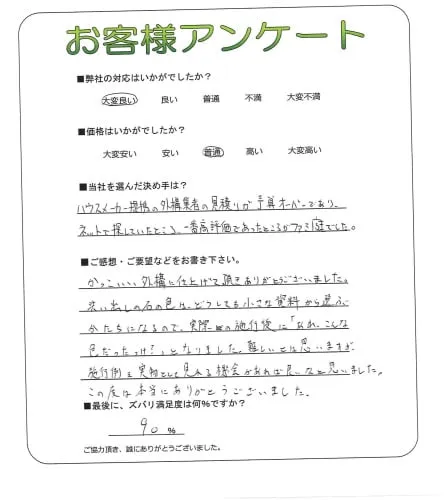 お客様アンケート
■弊社の対応はいかがでしたか？
大変良い 良い 普通 不満 大変不満
■価格はいかがでしたか？
大変安い 安い 普通 高い 大変高い
■当社を選んだ決め手は？
ハウスメーカー提携の外構業者の見積りが予算オーバーであり、
ネットで探していたところ、一番高評価であったところがファミ庭でした。
■ご感想・ご要望などをお書き下さい。
かっこいい外構に仕上げて頂きありがとうございました。
洗い出しの石の色は、どうしても小さな資料から選ぶ
かたちになるので、実際の施行後に「なんか、こんな
色だったっけ？」となりました。難しいとは思いますが
施行例を実物として見れる機会があれば良いなと思いました。
この度は本当にありがとうございました。
■最後に、ズバリ満足度は何%ですか？
90 %
ご協力頂き、誠にありがとうございました。